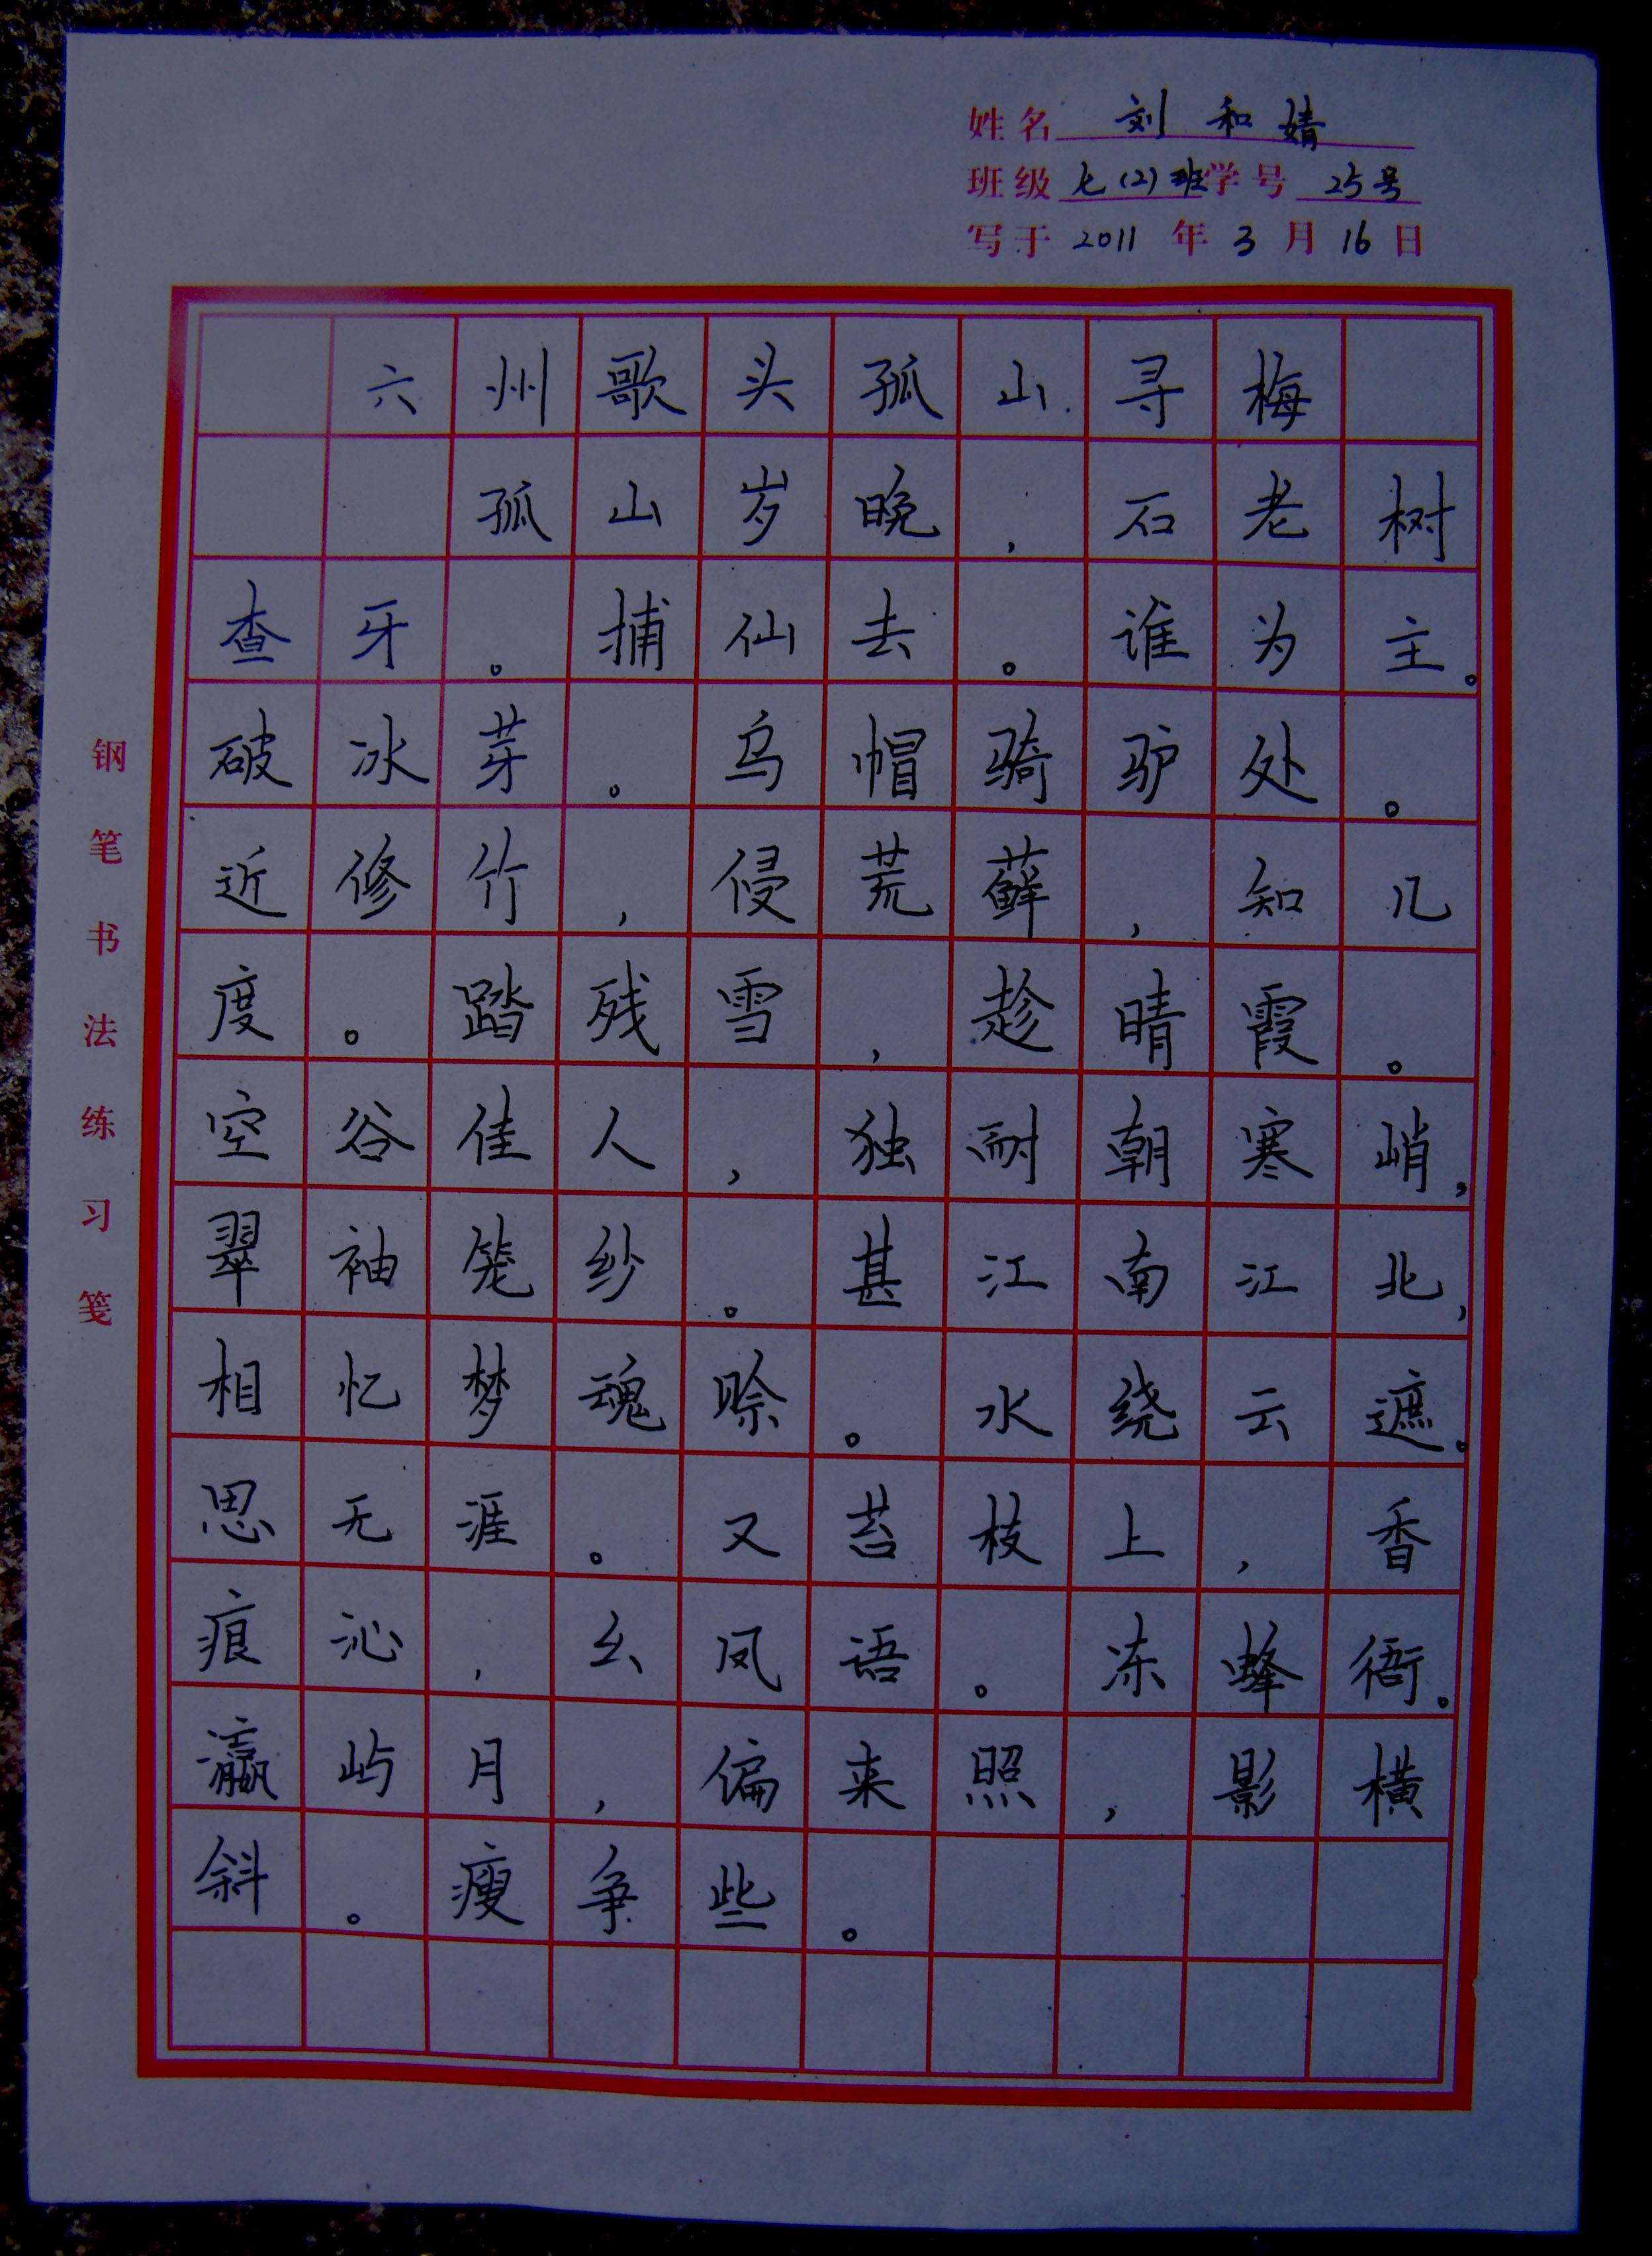 姓名 刘和婧
班级 七(2)班 学号 25号
写于 2011 年 3 月 16 日
六州歌头孤山寻梅
孤山岁晚，石老树
查牙。捕仙去。谁为主。
破冰芽。乌帽骑驴处。
近修竹，侵荒藓，知几
度。踏残雪，趁晴霞。
空谷佳人，独耐朝寒峭，
翠袖笼纱。甚江南江北，
相忆梦魂赊。水绕云遮。
思无涯。又苔枝上，香
痕沁，幺凤语。冻蜂衙。
瀛屿月，偏来照，影横
斜。瘦争些。
钢笔书法练习笺